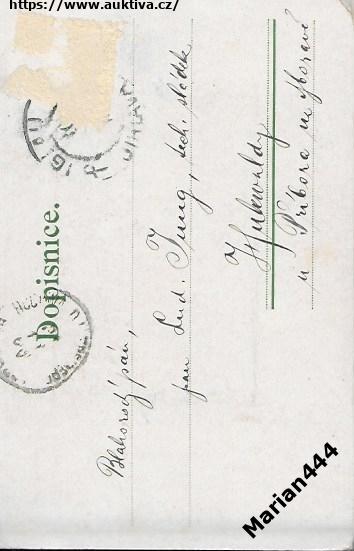 https://www.auktiva.cz/
Dopisnice.
Blahorodý pán,
pan Lud. Jung, tech. sládek
Hukvaldy
u Příbora na Moravě
JIHLAVA
Marian444